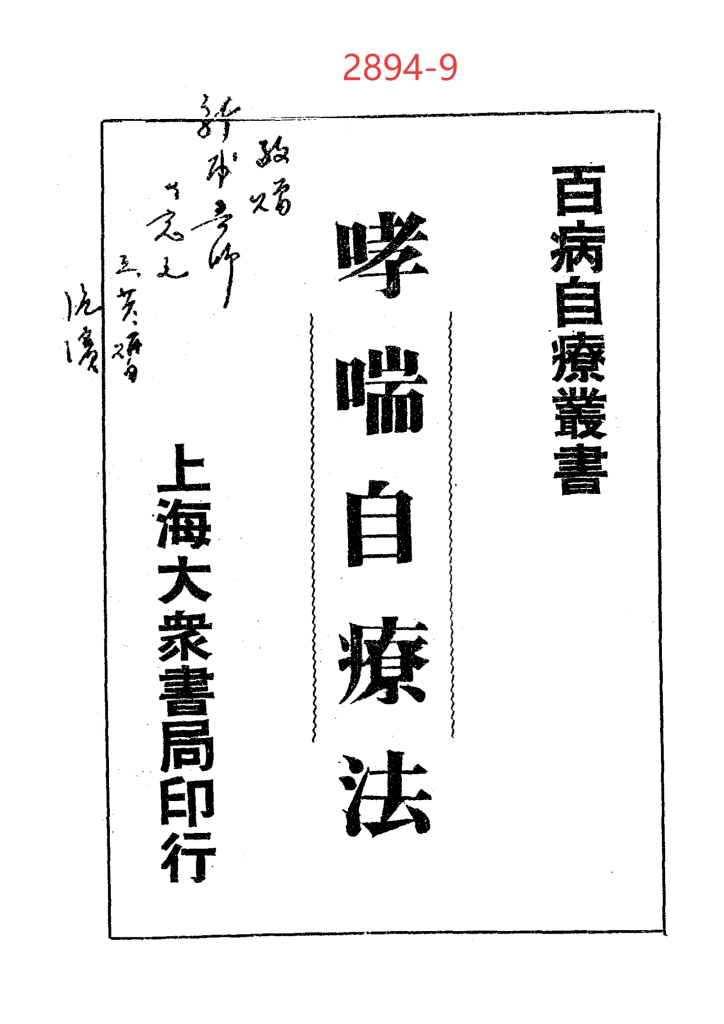 2894-9
百病自療叢書
哮喘自療法
敬贈
上海大衆書局印行